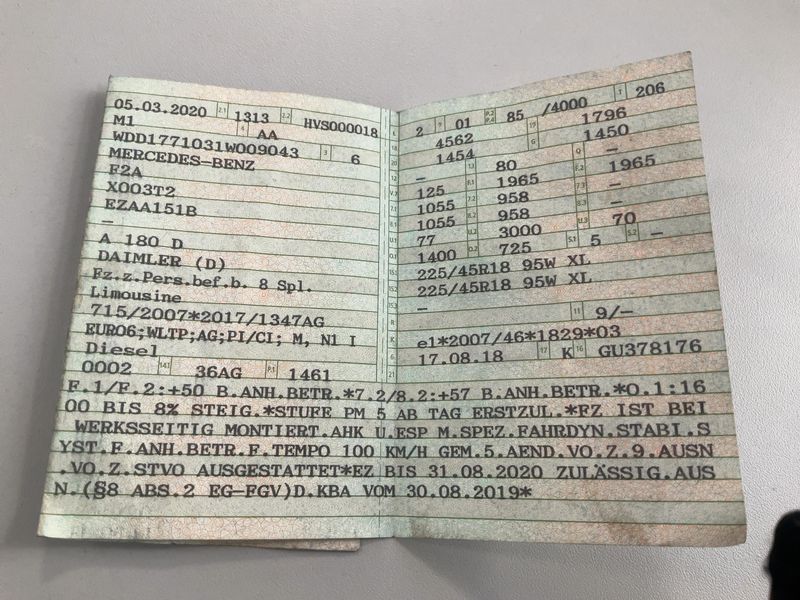 05.03.2020 2.1 1313 2.2 HVS000018
M1 4 AA
WDD1771031W009043 3 6
MERCEDES-BENZ
F2A
X003T2
EZAA151B
–
A 180 D
DAIMLER (D)
Fz.z.Pers.bef.b. 8 Spl.
Limousine
715/2007*2017/1347AG
EURO6;WLTP;AG;PI/CI; M, N1 I
Diesel
0002 14.1 36AG P.1 1461
L 2 9 01 P.2 P.4 85 /4000 T 206
18 4562 19 1796
20 1454 G 1450
12 – 13 80 Q –
V.7 125 F.1 1965 F.2 1965
7.1 1055 7.2 958 7.3 –
8.1 1055 8.2 958 8.3 –
U.1 77 U.2 3000 U.3 70
O.1 1400 O.2 725 S.1 5 S.2 –
15.1 225/45R18 95W XL
15.2 225/45R18 95W XL
15.3 –
R 11 9/–
K e1*2007/46*1829*03
6 17.08.18 17 K 16 GU378176
21
F.1/F.2:+50 B.ANH.BETR.*7.2/8.2:+57 B.ANH.BETR.*O.1:16
00 BIS 8% STEIG.*STUFE PM 5 AB TAG ERSTZUL.*FZ IST BEI
WERKSSEITIG MONTIERT.AHK U.ESP M.SPEZ.FAHRDYN.STABI.S
YST.F.ANH.BETR.F.TEMPO 100 KM/H GEM.5.AEND.VO.Z.9.AUSN
.VO.Z.STVO AUSGESTATTET*EZ BIS 31.08.2020 ZULÄSSIG.AUS
N.(§8 ABS.2 EG-FGV)D.KBA VOM 30.08.2019*